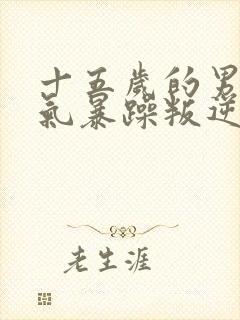 十五歲的男
氣暴躁叛逆
老生涯